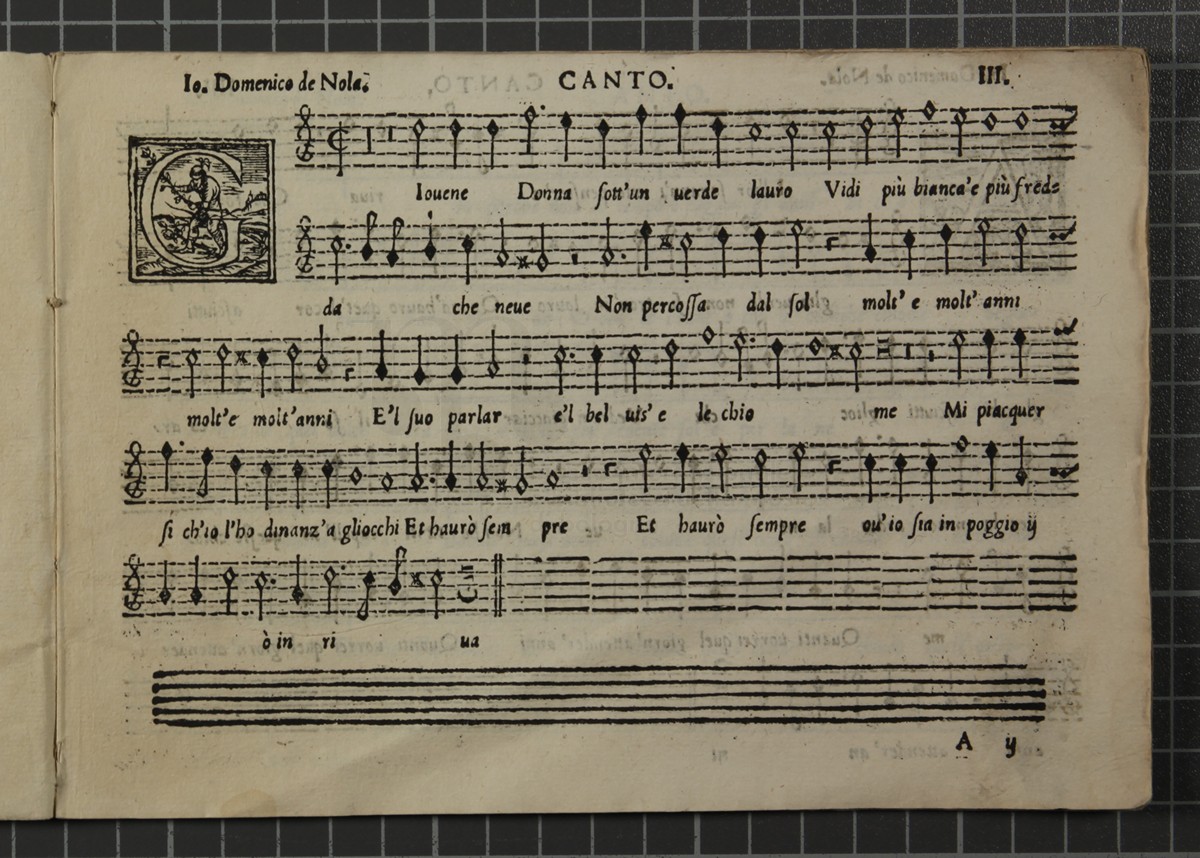 Io. Domenico de Nola. CANTO. III.
G Iouene Donna sott'un uerde lauro Vidi più bianca'e più fred-
da che neue Non percossa dal sol molt' e molt' anni
molt'e molt'anni E'l suo parlar e'l bel uis' e le chio me Mi piacquer
si ch'io l'ho dinanz'a gliocchi Et haurò sem pre Et haurò sempre ou'io sia in poggio ij
ò in ri ua
A ij